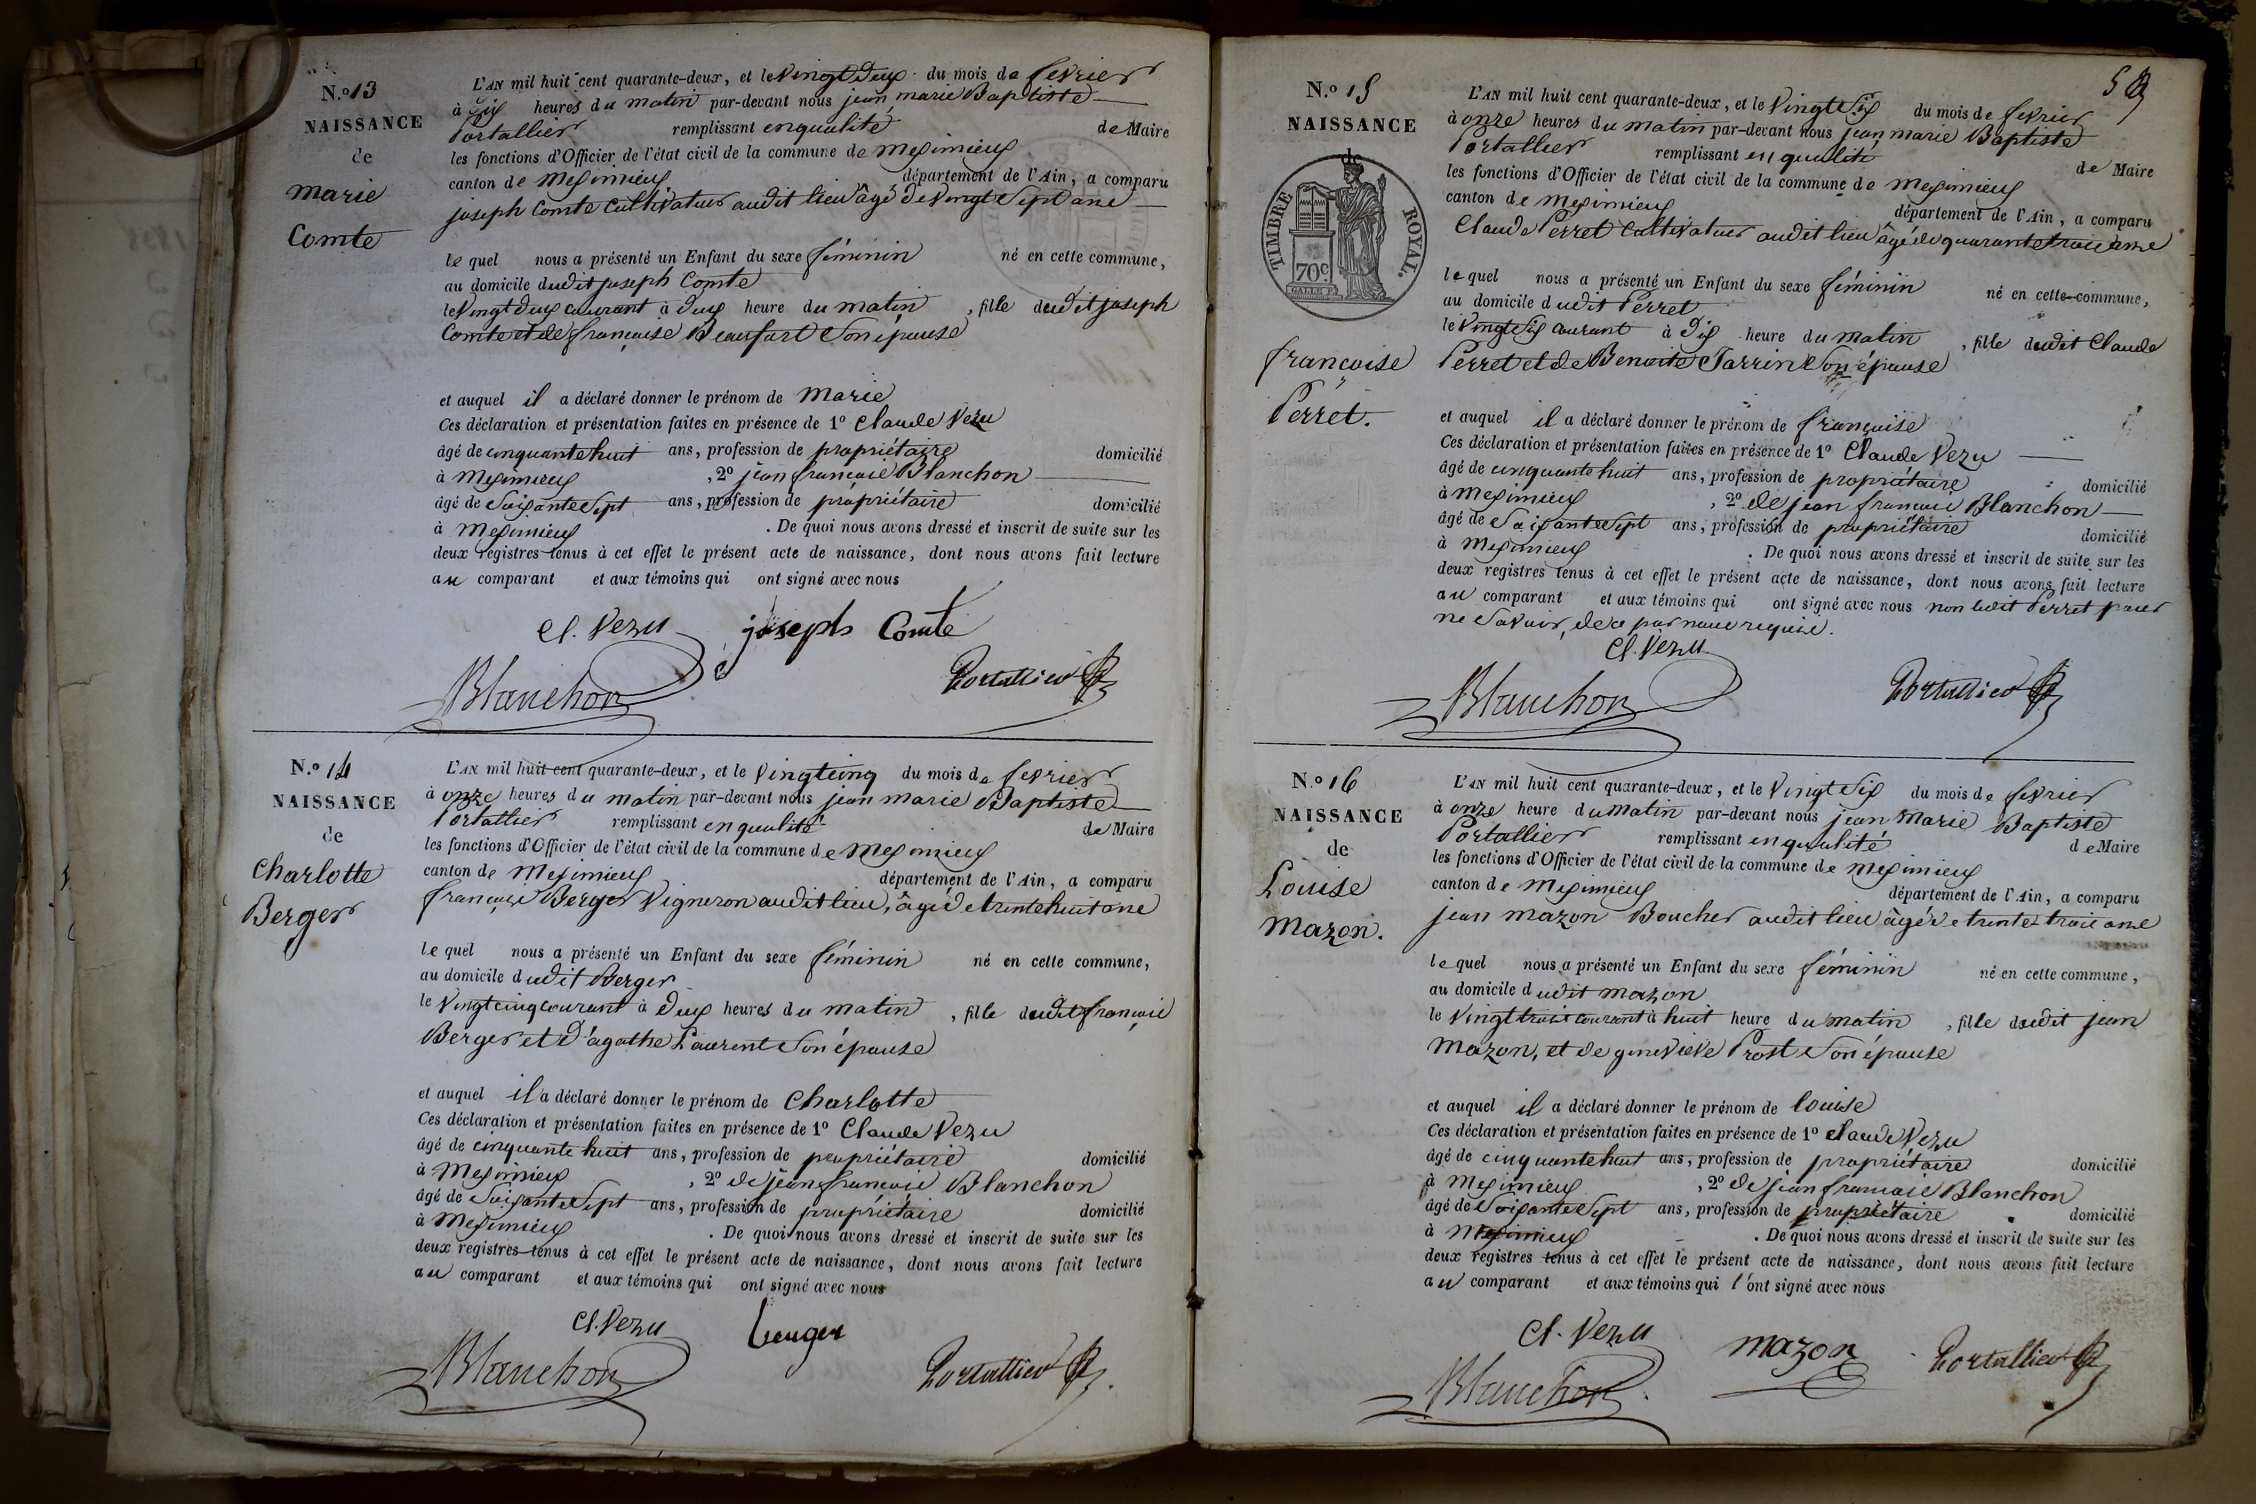 N.º 13
NAISSANCE
de
marie
Comte
L'AN mil huit cent quarante-deux, et le vingt deux du mois de fevrier
à dix heures du matin par-devant nous jean marie Baptiste
Portallier remplissant en qualité de Maire
les fonctions d'Officier de l'état civil de la commune de meximieux
canton de meximieux département de l'Ain, a comparu
joseph Comte cultivateur audit lieu âgé de vingt sept ans
le quel nous a présenté un Enfant du sexe féminin né en cette commune,
au domicile dudit joseph Comte
le vingt deux courant à deux heure du matin, fille dudit joseph
Comte et de françoise Beaufort son épouse
et auquel il a déclaré donner le prénom de marie
Ces déclaration et présentation faites en présence de 1º Claude Vezu
âgé de cinquante huit ans, profession de propriétaire domicilié
à meximieux, 2º jean françois Blanchon
âgé de soixante sept ans, profession de propriétaire domicilié
à meximieux. De quoi nous avons dressé et inscrit de suite sur les
deux registres tenus à cet effet le présent acte de naissance, dont nous avons fait lecture
au comparant et aux témoins qui ont signé avec nous
Cl. Vezu joseph Comte
Blanchon Portallier
N.º 14
NAISSANCE
de
Charlotte
Berger
L'AN mil huit cent quarante-deux, et le vingt cinq du mois de fevrier
à onze heures du matin par-devant nous jean marie Baptiste
Portallier remplissant en qualité de Maire
les fonctions d'Officier de l'état civil de la commune de meximieux
canton de meximieux département de l'Ain, a comparu
françois Berger vigneron audit lieu, âgé de trente huit ans
le quel nous a présenté un Enfant du sexe féminin né en cette commune,
au domicile dudit Berger
le vingt cinq courant à deux heures du matin, fille dudit françois
Berger et d'agathe Laurent son épouse
et auquel il a déclaré donner le prénom de Charlotte
Ces déclaration et présentation faites en présence de 1º Claude Vezu
âgé de cinquante huit ans, profession de propriétaire domicilié
à meximieux, 2º de jean françois Blanchon
âgé de soixante sept ans, profession de propriétaire domicilié
à meximieux. De quoi nous avons dressé et inscrit de suite sur les
deux registres tenus à cet effet le présent acte de naissance, dont nous avons fait lecture
au comparant et aux témoins qui ont signé avec nous
Cl. Vezu
Blanchon Portallier
5
N.º 15
NAISSANCE
de
TIMBRE ROYAL.
70c
françoise
Perret.
L'AN mil huit cent quarante-deux, et le vingt six du mois de fevrier
à onze heures du matin par-devant nous jean marie Baptiste
Portallier remplissant en qualité de Maire
les fonctions d'Officier de l'état civil de la commune de meximieux
canton de meximieux département de l'Ain, a comparu
Claude Perret cultivateur audit lieu âgé de quarante trois ans
le quel nous a présenté un Enfant du sexe féminin né en cette commune,
au domicile dudit Perret
le vingt six courant à dix heure du matin, fille dudit Claude
Perret et de Benoite Jarrin son épouse
et auquel il a déclaré donner le prénom de françoise
Ces déclaration et présentation faites en présence de 1º Claude Vezu
âgé de cinquante huit ans, profession de propriétaire domicilié
à meximieux, 2º de jean françois Blanchon
âgé de soixante sept ans, profession de propriétaire domicilié
à meximieux. De quoi nous avons dressé et inscrit de suite sur les
deux registres tenus à cet effet le présent acte de naissance, dont nous avons fait lecture
au comparant et aux témoins qui ont signé avec nous non ledit Perret pour
ne savoir, de ce par nous requis.
Cl. Vezu
Blanchon Portallier
N.º 16
NAISSANCE
de
Louise
Mazon.
L'AN mil huit cent quarante-deux, et le vingt six du mois de fevrier
à onze heure du matin par-devant nous jean marie Baptiste
Portallier remplissant en qualité de Maire
les fonctions d'Officier de l'état civil de la commune de meximieux
canton de meximieux département de l'Ain, a comparu
jean mazon Boucher audit lieu âgé de trente trois ans
le quel nous a présenté un Enfant du sexe féminin né en cette commune,
au domicile dudit mazon
le vingt trois courant à huit heure du matin, fille dudit jean
mazon, et de genevieve Prost son épouse
et auquel il a déclaré donner le prénom de louise
Ces déclaration et présentation faites en présence de 1º Claude Vezu
âgé de cinquante huit ans, profession de propriétaire domicilié
à meximieux, 2º de jean françois Blanchon
âgé de soixante sept ans, profession de propriétaire domicilié
à meximieux. De quoi nous avons dressé et inscrit de suite sur les
deux registres tenus à cet effet le présent acte de naissance, dont nous avons fait lecture
au comparant et aux témoins qui l'ont signé avec nous
Cl. Vezu mazon Portallier
Blanchon